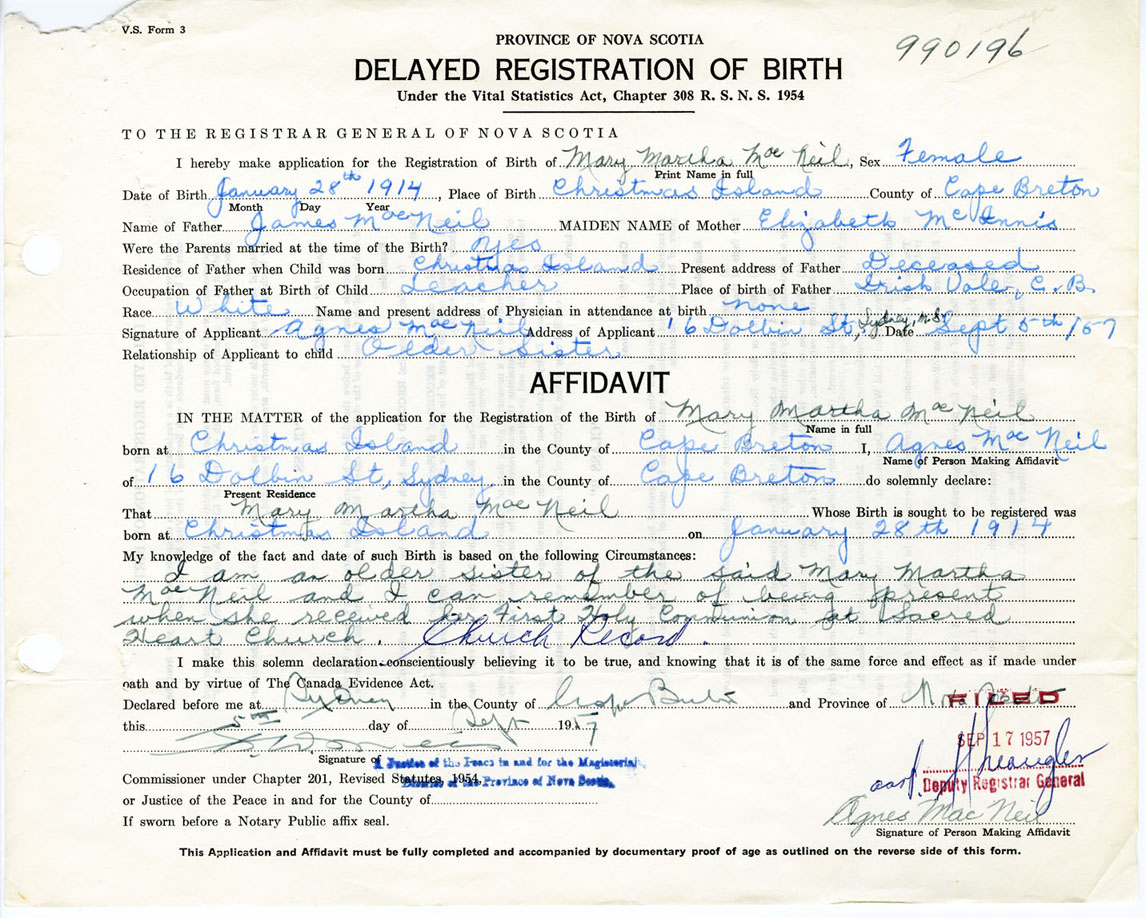 V.S. Form 3
990196
PROVINCE OF NOVA SCOTIA
DELAYED REGISTRATION OF BIRTH
Under the Vital Statistics Act, Chapter 308 R. S. N. S. 1954
TO THE REGISTRAR GENERAL OF NOVA SCOTIA
I hereby make application for the Registration of Birth of Mary Martha Mac Neil, Sex Female
Print Name in full
Date of Birth January 28th 1914, Place of Birth Christmas Island County of Cape Breton
Month Day Year
Name of Father James MacNeil MAIDEN NAME of Mother Elizabeth McInnis
Were the Parents married at the time of the Birth? yes
Residence of Father when Child was born Christmas Island Present address of Father Deceased
Occupation of Father at Birth of Child Teacher Place of birth of Father Irish Vale, C. B.
Race White Name and present address of Physician in attendance at birth none
Signature of Applicant Agnes MacNeil Address of Applicant 16 Dolbin St, Sydney, N.S. Date Sept 5th /57
Relationship of Applicant to child Older Sister
AFFIDAVIT
IN THE MATTER of the application for the Registration of the Birth of Mary Martha MacNeil
Name in full
born at Christmas Island in the County of Cape Breton I, Agnes MacNeil
Name of Person Making Affidavit
of 16 Dolbin St, Sydney, in the County of Cape Breton do solemnly declare:
Present Residence
That Mary Martha MacNeil Whose Birth is sought to be registered was
born at Christmas Island on January 28th 1914
My knowledge of the fact and date of such Birth is based on the following Circumstances:
I am an older sister of the said Mary Martha
MacNeil and I can remember of being present
when she received her First Holy Communion at Sacred
Heart Church. Church Record.
I make this solemn declaration conscientiously believing it to be true, and knowing that it is of the same force and effect as if made under
oath and by virtue of The Canada Evidence Act.
Declared before me at Sydney in the County of Cape Breton and Province of Nova Scotia
FILED
this 5th day of Sept 1957
SEP 17 1957
Signature of
A Justice of the Peace in and for the Magisterial
District of the Province of Nova Scotia.
Commissioner under Chapter 201, Revised Statutes, 1954,
Deputy Registrar General
or Justice of the Peace in and for the County of
Agnes MacNeil
If sworn before a Notary Public affix seal.
Signature of Person Making Affidavit
This Application and Affidavit must be fully completed and accompanied by documentary proof of age as outlined on the reverse side of this form.